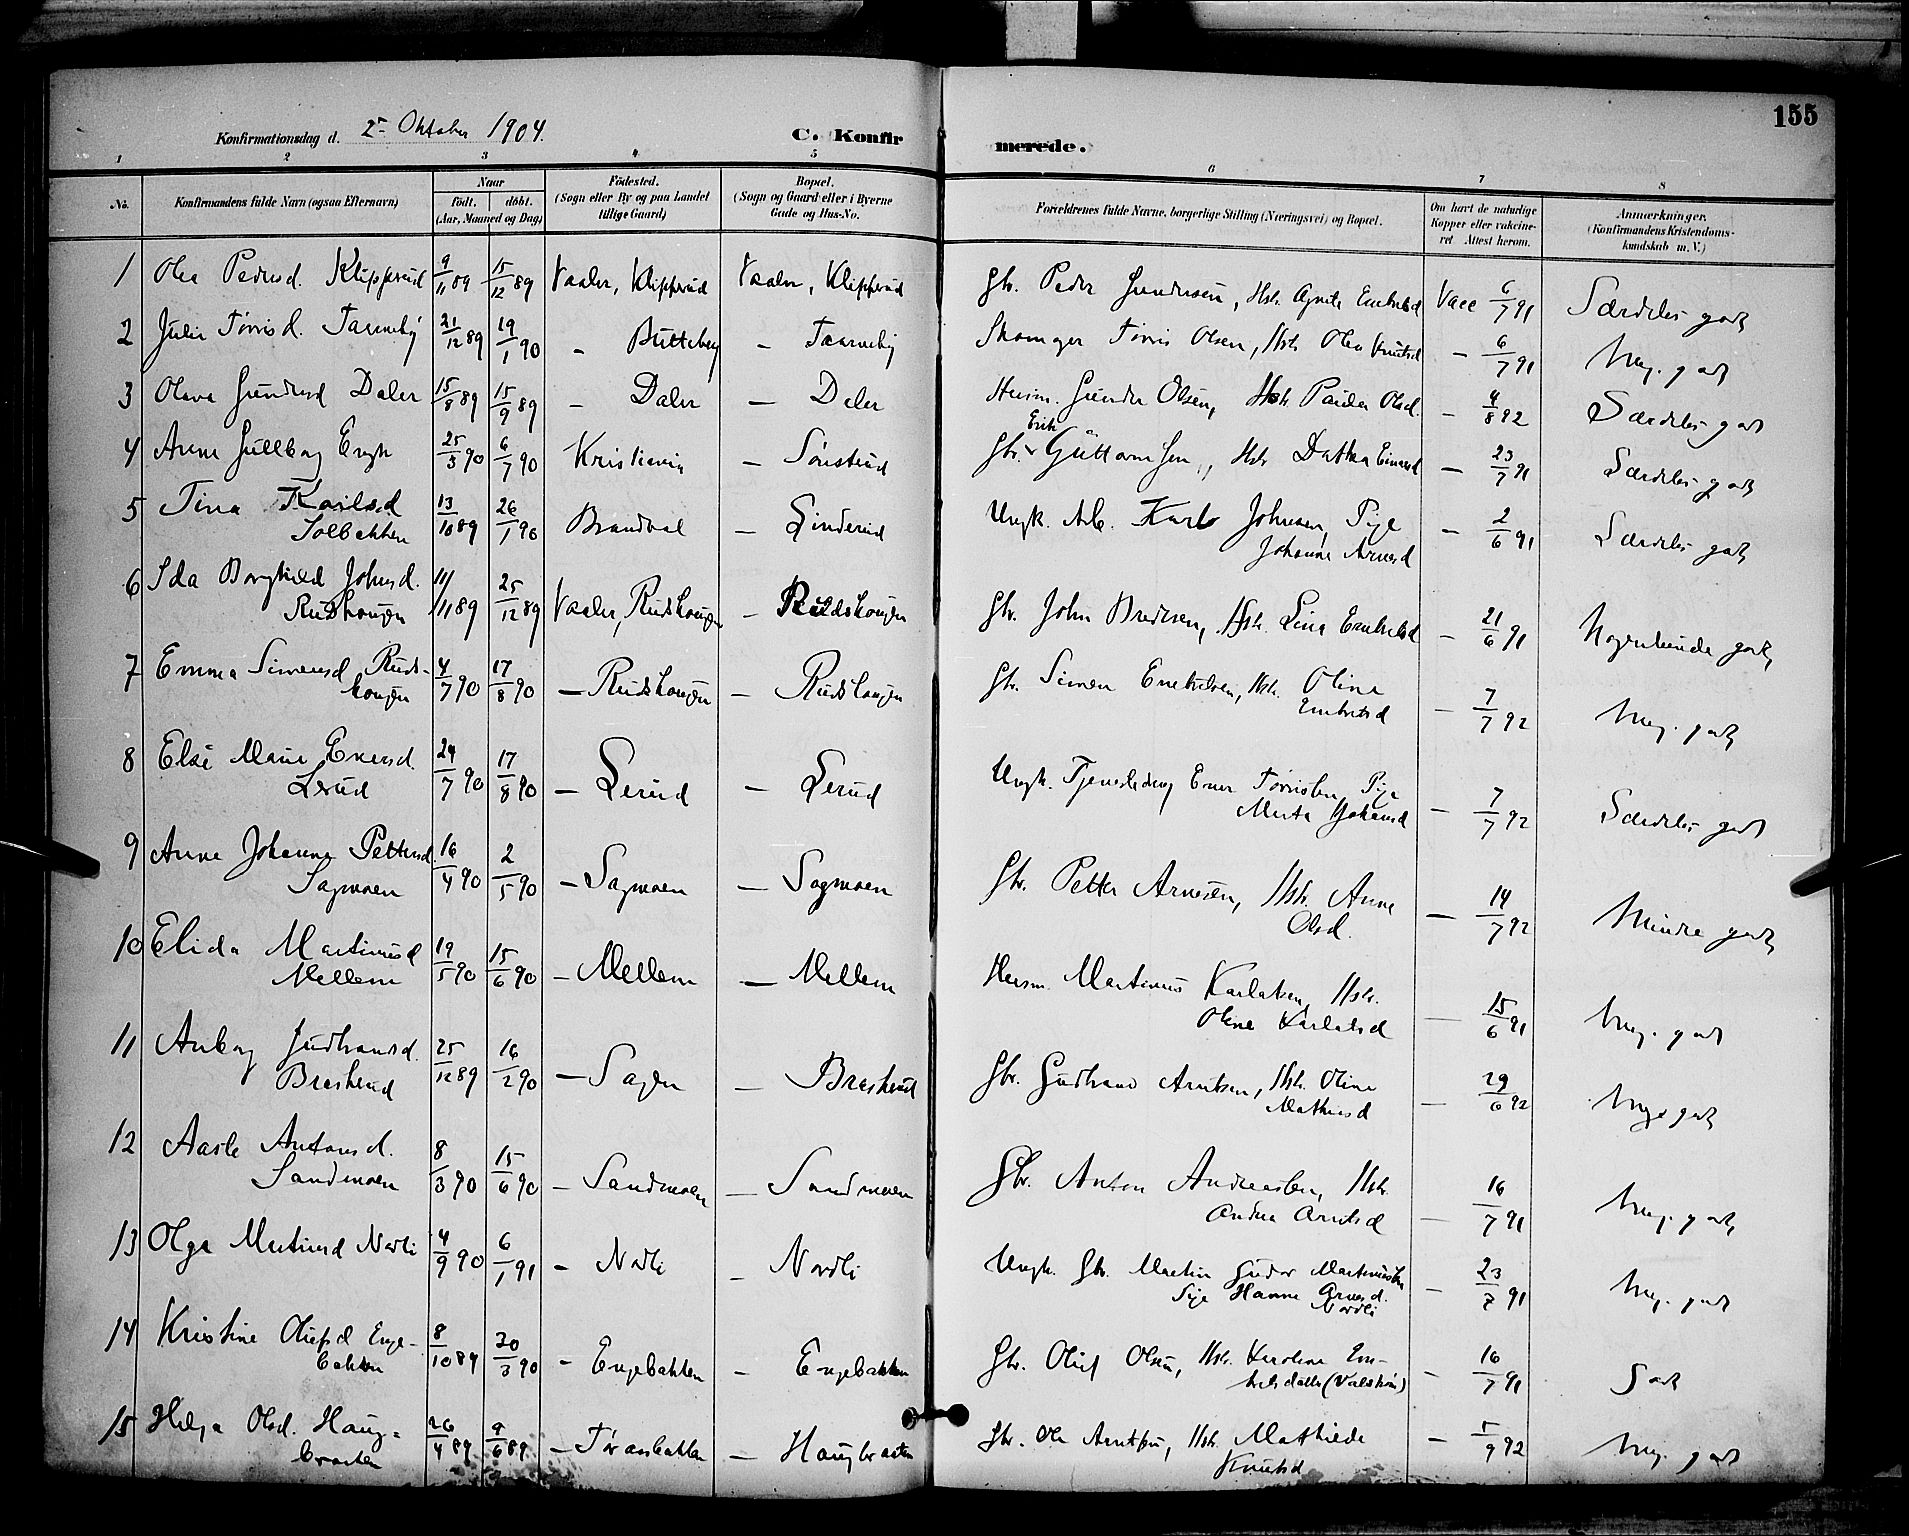 155
Konfirmationsdag d. 2 Oktober 1904.
C. Konfirmerede.
1 2 3 4 5 6 7 8
No.
Konfirmandens fulde Navn (ogsaa Efternavn)
Naar
födt. döbt.
(Aar, Maaned og Dag)
Födested.
(Sogn eller By og paa Landet
tillige Gaard)
Bopæl.
(Sogn og Gaard eller i Byerne
Gade og Hus-No.
Forældrenes fulde Navne, borgerlige Stilling (Næringsvei) og Bopæl.
Om havt de naturlige
Kopper eller vakcine-
ret Attest herom.
Anmærkninger.
(Konfirmandens Kristendoms-
kundskab m. V.)
1 Olea Pedersd. Klipperud 9/11 89 15/12 89 Vaaler, Klipperud Vaaler, Klipperud Gbr. Peder Gundersen, Hstr. Agnete Embretsd Vacc 6/7 91 Særdeles godt
2 Julie Tørrisd. Taarneby 21/12 89 19/1 90 - Butteberg - Taarneby Skomager Tørris Olsen, Hstr. Olea Knutsd - 6/7 91 Meg. godt
3 Olava Gundersd Daler 15/8 89 15/9 89 - Daler - Daler Husm. Gunder Olsen, Hstr. Paulea Olsd. - 4/8 92 Særdeles godt
4 Anne Gullborg Engh 25/3 90 6/7 90 Kristiania - Sønsterud Gbr. Erik Guttormsen, Hstr. Dorthea Einarsd - 23/7 91 Særdeles godt
5 Tina Karlsd
Solbakken 13/10 89 26/1 90 Brandval - Linderud Ungk. Arb. Karl Johnsen, Pige
Johanne Arnesd - 2/6 91 Særdeles godt
6 Ida Borghild Johnsd.
Rudshaugen 11/11 89 25/12 89 Vaaler, Rudshaugen - Rudshaugen Gbr. John Bredesen, Hstr. Lina Embretsd - 21/6 91 Nogenlunde godt
7 Emma Simensd Ruds-
haugen 4/7 90 17/8 90 - Rudshaugen - Rudshaugen Gbr. Simen Embretsen, Hstr. Oline
Embretsd - 7/7 92 Meg. godt
8 Else Marie Enersd.
Lerud 24/7 90 17/8 90 - Lerud - Lerud Ungk. Tjenestedreng Ener Tørrissen, Pige
Marte Johansd - 7/7 92 Særdeles godt
9 Anne Johanne Pettersd.
Sagmoen 16/4 90 2/5 90 - Sagmoen - Sagmoen Gbr. Petter Arnesen, Hstr. Anne
Olsd. - 14/7 92 Mindre godt
10 Elida Martinusd
Mellem 19/5 90 15/6 90 - Mellem - Mellem Husm. Martinus Karlsen, Hstr.
Oline Karlsd - 15/6 91 Meg. godt
11 Anborg Gudbrandsd.
Braskerud 25/12 89 16/2 90 - Sagen - Braskerud Gbr. Gudbrand Arntsen, Hstr. Oline
Mathiesd - 29/6 92 Meget godt
12 Aaste Antonsd.
Sandmoen 8/3 90 15/6 90 - Sandmoen - Sandmoen Gbr. Anton Andreassen, Hstr.
Andrea Arntsd - 16/7 91 Meg. godt
13 Olga Martinsd Nordli 4/9 90 6/1 91 - Nordli - Nordli Ungk. Gbr. Martin Gudor Martinussen
Pige Hanne Arnesd.
Nordli - 23/7 91 Meg. godt
14 Kristine Olufsd Enge-
bakken 8/10 89 30/3 90 - Engebakken - Engebakken Gbr. Oluf Olsen, Hstr. Karoline Em-
bretsdatter - 16/7 91 Godt
15 Helga Olsd. Haug-
braaten 26/4 89 9/6 89 - Tøraasbakken - Haugbraaten Gbr. Ole Arntsen, Hstr. Mathilde
Knutsd - 5/9 92 Meg. godt